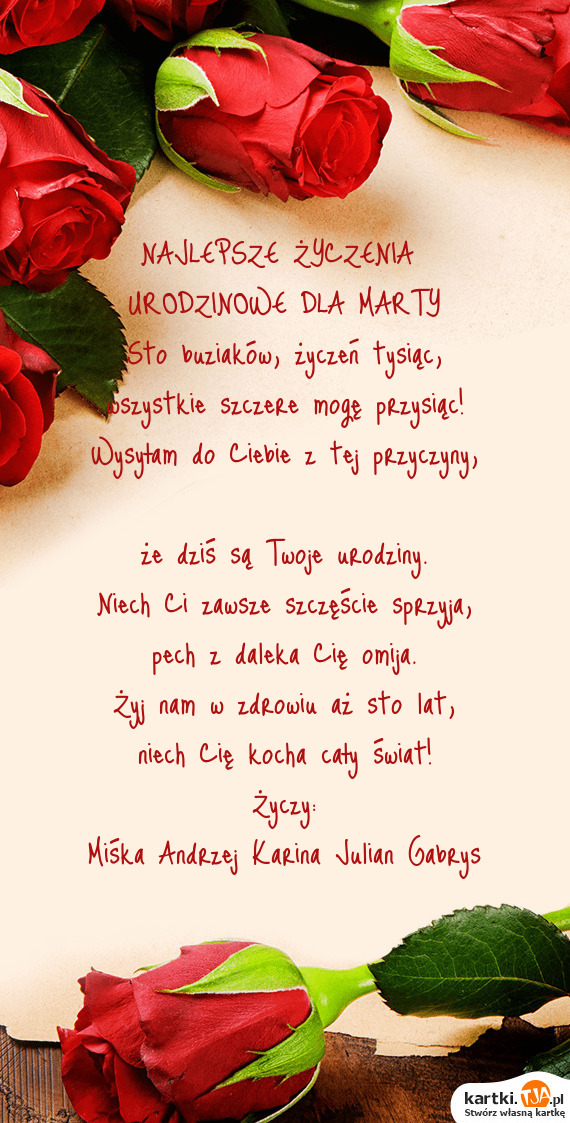 NAJLEPSZE ŻYCZENIA
URODZINOWE DLA MARTY
Sto buziaków, życzeń tysiąc,
wszystkie szczere mogę przysiąc!
Wysyłam do Ciebie z tej przyczyny,
że dziś są Twoje urodziny.
Niech Ci zawsze szczęście sprzyja,
pech z daleka Cię omija.
Żyj nam w zdrowiu aż sto lat,
niech Cię kocha cały świat!
Życzy:
Miśka Andrzej Karina Julian Gabrys
kartki.TJA.pl
Stwórz własną kartkę